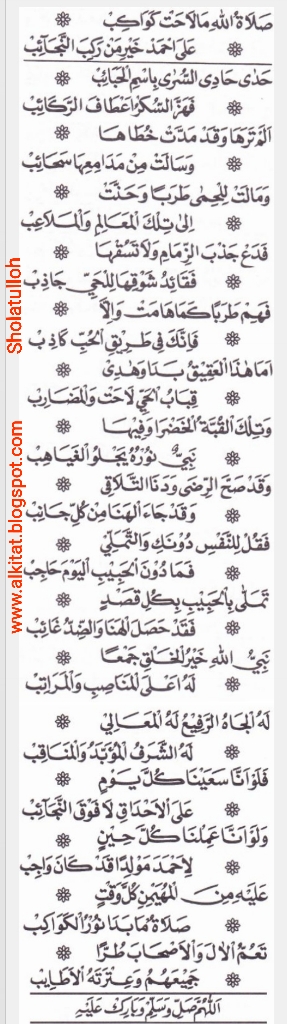 صَلَاةُ اللهِ مَا لَاحَتْ كَوَاكِبْ
عَلَى أَحْمَدْ خَيْرِ مَنْ رَكِبَ النَّجَائِبْ
حَدَى حَادِى السُّرَى بِاسْمِ الْحَبَائِبْ
فَهَزَّ السُّكْرُ أَعْطَافَ الرَّكَائِبْ
أَلَمْ تَرَهَا وَقَدْ مَدَّتْ خُطَاهَا
وَسَالَتْ مِنْ مَدَامِعِهَا سَحَائِبْ
وَمَالَتْ لِلْحِمَى طَرَبًا وَحَنَّتْ
إِلَى تِلْكَ الْمَعَالِمِ وَالْمَلَاعِبْ
فَدَعْ جَذْبَ الزِّمَامِ وَلَا تَسُقْهَا
فَقَائِدُ شَوْقِهَا لِلْحَيِّ جَاذِبْ
فَهِمْ طَرَبًا كَمَا هَامَتْ وَإِلَّا
فَإِنَّكَ فِى طَرِيقِ الْحُبِّ كَاذِبْ
أَمَا هٰذَا الْعَقِيقُ بَدَا وَهٰذِى
قِبَابُ الْحَيِّ لَاحَتْ وَالْمَضَارِبْ
وَتِلْكَ الْقُبَّةُ الْخَضْرَا وَفِيهَا
نَبِيٌّ نُورُهُ يَجْلُو الْغَيَاهِبْ
وَقَدْ صَحَّ الرِّضَى وَدَنَا التَّلَاقِى
وَقَدْ جَاءَ الْهَنَا مِنْ كُلِّ جَانِبْ
فَقُلْ لِلنَّفْسِ دُونَكِ وَالتَّمَلِّى
فَمَا دُونَ الْحَبِيبِ الْيَوْمَ حَاجِبْ
تَمَلَّى بِالْحَبِيبِ بِكُلِّ قَصْدٍ
فَقَدْ حَصَلَ الْهَنَا وَالضِّدُّ غَائِبْ
نَبِيُّ اللهِ خَيْرُ الْخَلْقِ جَمْعًا
لَهُ أَعْلَى الْمَنَاصِبِ وَالْمَرَاتِبْ
لَهُ الْجَاهُ الرَّفِيعُ لَهُ الْمَعَالِي
لَهُ الشَّرَفُ الْمُؤَبَّدُ وَالْمَنَاقِبْ
فَلَوْ أَنَّا سَعَيْنَا كُلَّ يَوْمٍ
عَلَى الْأَحْدَاقِ لَا فَوْقَ النَّجَائِبْ
وَلَوْ أَنَّا عَمِلْنَا كُلَّ حِينٍ
لِأَحْمَدَ مَوْلِدًا قَدْ كَانَ وَاجِبْ
عَلَيْهِ مِنَ الْمُهَيْمِنِ كُلَّ وَقْتٍ
صَلَاةٌ مَا بَدَا نُورُ الْكَوَاكِبْ
تَعُمُّ الْآلَ وَالْأَصْحَابَ طُرًّا
جَمِيعَهُمُ وَعِتْرَتَهُ الْأَطَايِبْ
اللّٰهُمَّ صَلِّ وَسَلِّمْ وَبَارِكْ عَلَيْهِ
Sholatulloh
www.alkitat.blogspot.com